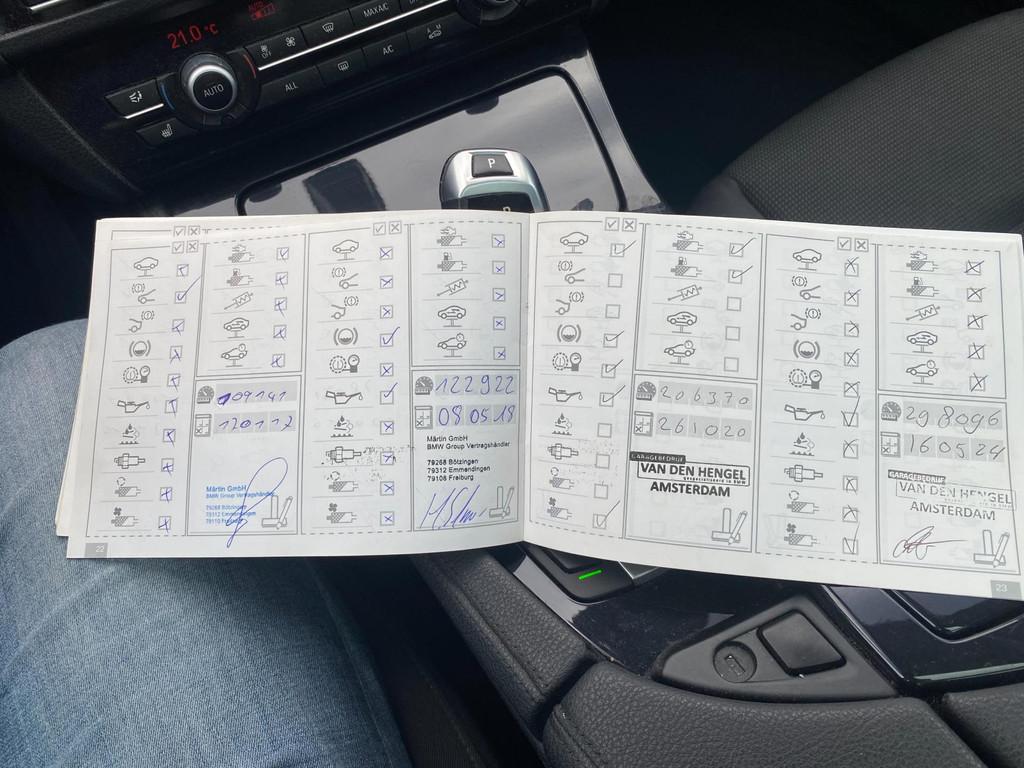 21.0 °C
AUTO
MAX A/C
OFF
AUTO
ALL
A/C
P
109141
120117
Märtin GmbH
BMW Group Vertragshändler
79268 Bötzingen
79312 Emmendingen
79110 Freiburg
22
122.922
08.05.18
Märtin GmbH
BMW Group Vertragshändler
79268 Bötzingen
79312 Emmendingen
79108 Freiburg
206370
261020
GARAGEBEDRIJF
VAN DEN HENGEL
gespecialiseerd in BMW
AMSTERDAM
298096
160524
GARAGEBEDRIJF
VAN DEN HENGEL
AMSTERDAM
23